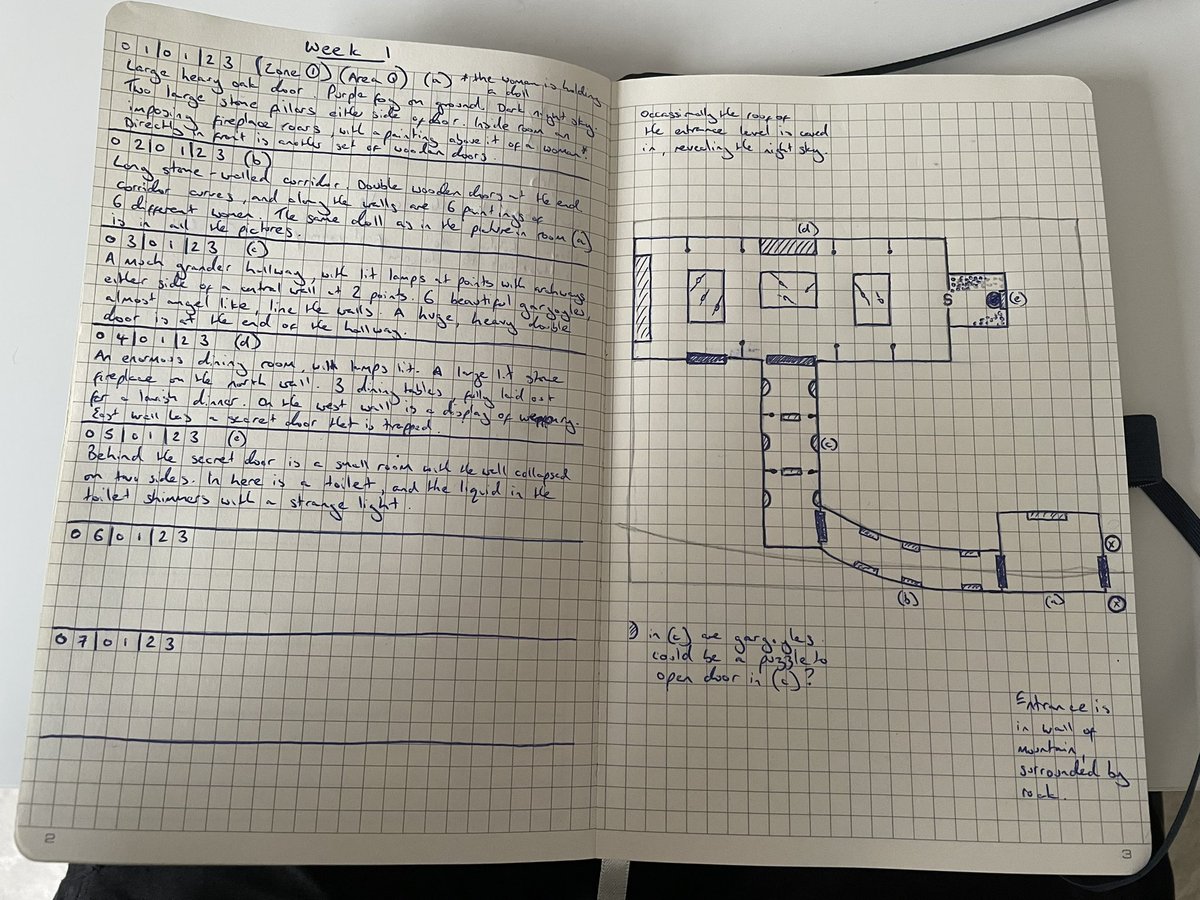 Week 1
01|01|23 (Zone ①) (Area Q) (a) * the woman is holding
a doll
Large heavy oak door. Purple fog on ground. Dark night sky.
Two large stone pillars either side of door. Inside room an
imposing fireplace roars, with a painting above it of a woman*.
Directly in front is another set of wooden doors.
02|01|23 (b)
Long stone-walled corridor. Double wooden doors at the end
corridor curves, and along the walls are 6 paintings of
6 different women. The same doll as in the picture in room (a)
is in all the pictures.
03|01|23 (c)
A much grander hallway, with lit lamps at points with archways
either side of a central wall at 2 points. 6 beautiful gargoyles,
almost angel like, line the walls. A huge, heavy double
door is at the end of the hallway.
04|01|23 (d)
An enormous dining room, with lamps lit. A large lit stone
fireplace on the north wall. 3 dining tables, fully laid out
for a lavish dinner. On the west wall is a display of weaponry.
East wall has a secret door that is trapped.
05|01|23 (e)
Behind the secret door is a small room with the wall collapsed
on two sides. In here is a toilet, and the liquid in the
toilet shimmers with a strange light.
06|01|23
07|01|23
2
Occassionally the roof of
the entrance level is caved
in, revealing the night sky.
(d)
S
(e)
(c)
(b)
(a)
in (c) are gargoyles.
could be a puzzle to
open door in (c)?
Entrance is
in wall of
mountain,
surrounded by
rock.
3